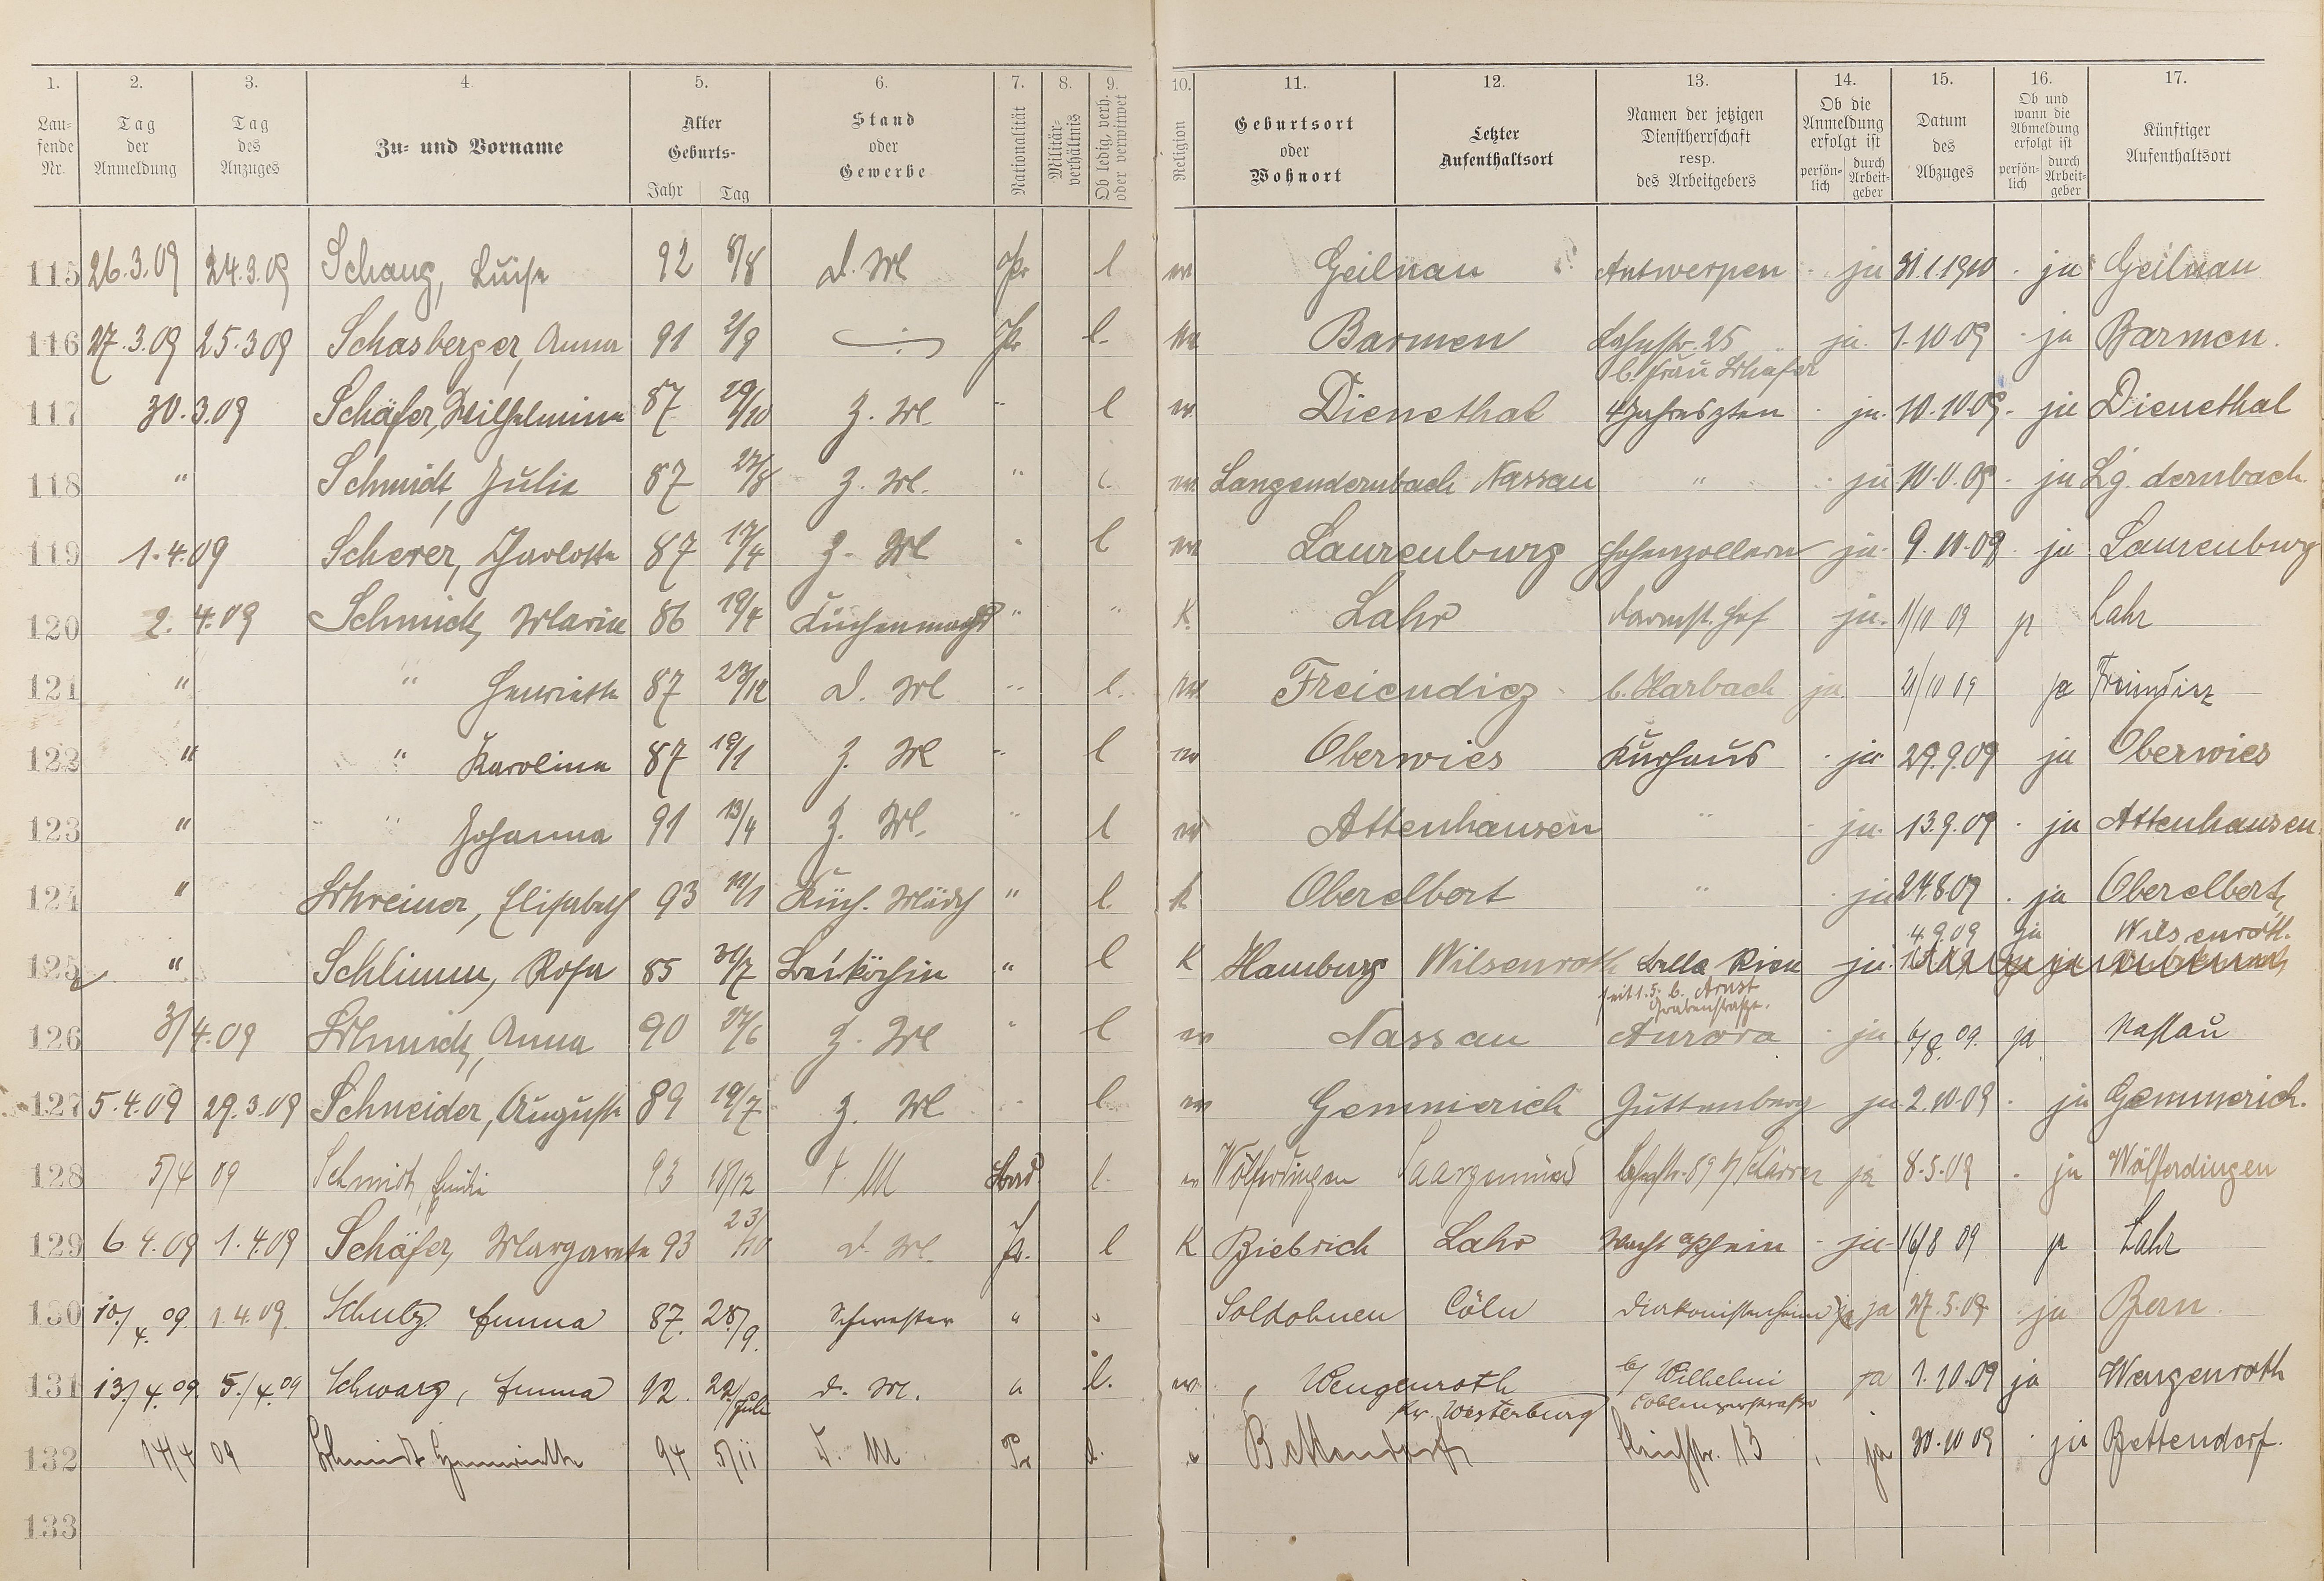 1. 2. 3. 4. 5. 6. 7. 8. 9. 10. 11. 12. 13. 14. 15. 16. 17.
Lau-
fende
Nr.
Tag
der
Anmeldung
Tag
des
Anzuges
Zu- und Vorname
Alter
Geburts-
Jahr Tag
Stand
oder
Gewerbe
Nationalität
Militär-
verhältnis
Ob ledig, verh.
oder verwitwet
Religion
Geburtsort
oder
Wohnort
Letzter
Aufenthaltsort
Namen der jetzigen
Dienstherrschaft
resp.
des Arbeitgebers
Ob die
Anmeldung
erfolgt ist
persön-
lich
durch
Arbeit-
geber
Datum
des
Abzuges
Ob und
wann die
Abmeldung
erfolgt ist
persön-
lich
durch
Arbeit-
geber
Künftiger
Aufenthaltsort
115 26.3.09 24.3.09 Schaug, Luise 92 8/8 D. M Pr l ev Geilnau Antwerpen ja 31.1.1910 ja Geilnau
116 27.3.09 25.3 09 Schasberger, Anna 91 2/9 Pr l. ev Barmen Lahnstr. 25 ja. 1.10.09 ja Barmen.
b. Frau Schäfer
117 30.3.09 Schäfer, Wilhelmine 87 29/10 Z. M. " l ev. Dienethal 4 Jahreszten ja. 10.10.09. ja Dienethal
118 " Schmidt, Julie 87 27/8 Z. M. " l. ev. Langendernbach Nassau " ja 10.0.09 ja Lg. dernbach.
119 1.4.09 Scherer, Charlotte 87 17/4 Z. M " l ev Laurenburg Hohenzollern ja. 9.10.09 ja Laurenburg
120 2.4.09 Schmidt, Marie 86 19/4 Küchenmagd " " K. Lahr Darmst. Hof ja. 1/10 09 ja Lahr
121 " " Henriette 87 23/12 D. M " l. ev Freiendiez b. Harbach ja 21/10 09 ja Freiendiez
122 " " Karoline 87 19/1 Z. M " l ev Oberwies Kurhaus ja 29.9.09 ja Oberwies
123 " " Johanna 91 13/4 Z. M. " l ev Attenhausen " ja. 13.9.09 ja Attenhausen.
124 " Schreiner, Elisabeth 93 11/1 Küch. Mädch " l. k Oberelbert " ja 24.8 09 ja Oberelbert
4.9.09 ja Wilsenroth.
125 " Schlimm, Rosa 85 31/7 Beiköchin " l K Hamburg Wilsenroth Bella Riva ja.
seit 1.5. b. Arnst
Grabenstraße.
126 3/4.09 Schmidt, Anna 90 27/6 Z. M " l ev Nassau Aurora ja 6/8. 09. ja Nassau
127 5.4.09 29.3.09 Schneider, Auguste 89 19/7 Z. M " l ev Gemmerich Guttenberg ja 2.10.09 ja Gemmerich.
128 5/4 09 Schmidt, Emilie 93 18/12 D. M l. ev Wölferdingen Saargemünd Lahnstr. 59 ja 8.5.09 ja Wölferdingen
129 6 4.09 1.4.09 Schäfer, Margarete 93 23/10 D. M. Pr. l K Biebrich Lahr Wacht a/Rhein ja 16/8 09 ja Lahr
130 10./4. 09. 1.4.09. Schulz Emma 87. 28./9. Schwester " " Soldohnen Cöln Diakonissenheim ja 27.5.09. ja Bern
131 13./4. 09. 5./4. 09 Schwarz, Emma 92. 22./Juli D. M. " l. ev. Wengenroth b/ Wilhelmi ja 1.10.09 ja Wengenroth
Kr. Westerburg Coblenzerstraße
132 14/4 09 Schmidt Henriette 94 5/11 D. M. Pr l. " Bettendorf 13 ja 30.10 09 ja Bettendorf.
133